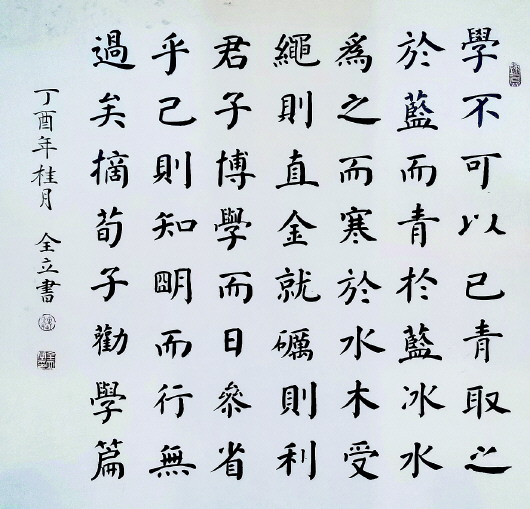 學不可以已青取之
於藍而青於藍冰水
爲之而寒於水木受
繩則直金就礪則利
君子博學而日參省
乎己則知朙而行無
過矣摘荀子勸學篇
丁酉年桂月 全立書